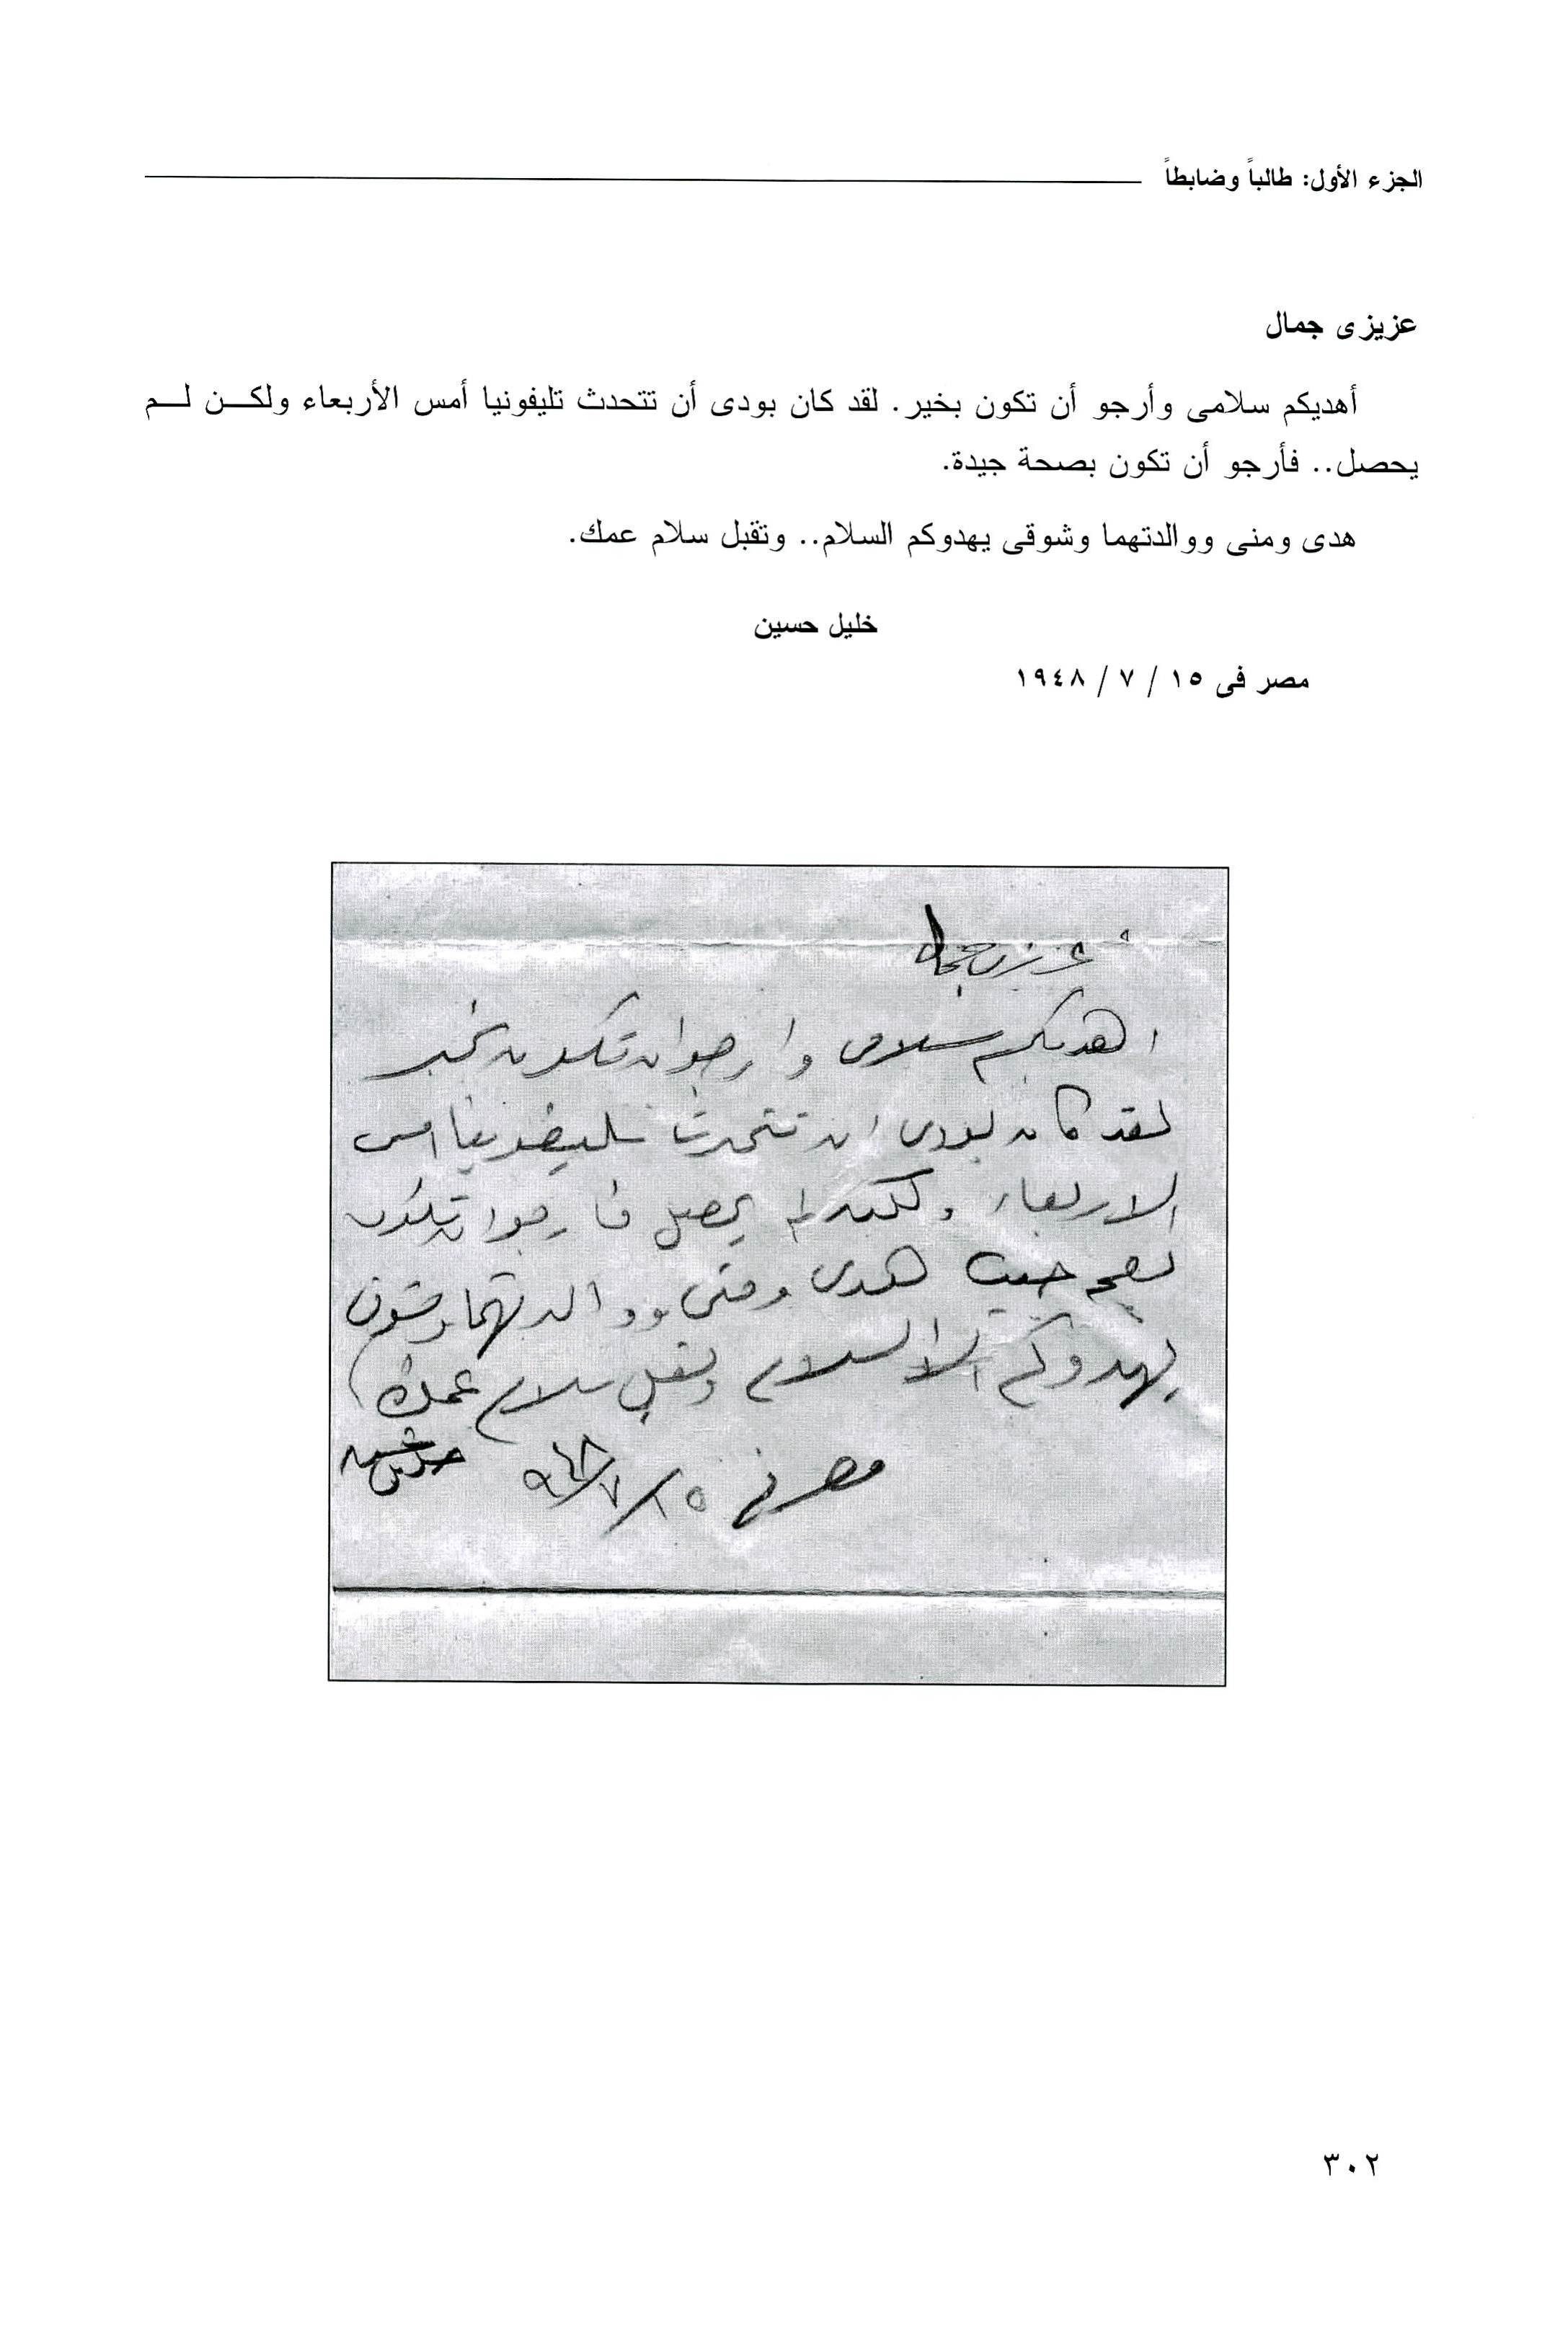 الجزء الأول: طالباً وضابطاً
عزيزى جمال
أهديكم سلامى وأرجو أن تكون بخير. لقد كان بودى أن تتحدث تليفونيا أمس الأربعاء ولكـــن لـــم
يحصل.. فأرجو أن تكون بصحة جيدة.
هدى ومنى ووالدتهما وشوقى يهدوكم السلام.. وتقبل سلام عمك.
خليل حسين
مصر فى ١٥ / ٧ / ١٩٤٨
عزيزى جمال
اهديكم سلامى وارجو ان تكون بخير
لقد كان بودى ان تتحدث تليفونيا امس
الاربعاء ولكن لم يحصل فارجو ان تكون
بصحة جيدة هدى ومنى ووالدتهما وشوقى
يهدوكم السلام وتقبل سلام عمك
مصر فى ١٥/٧/٩٤٨
٣٠٢